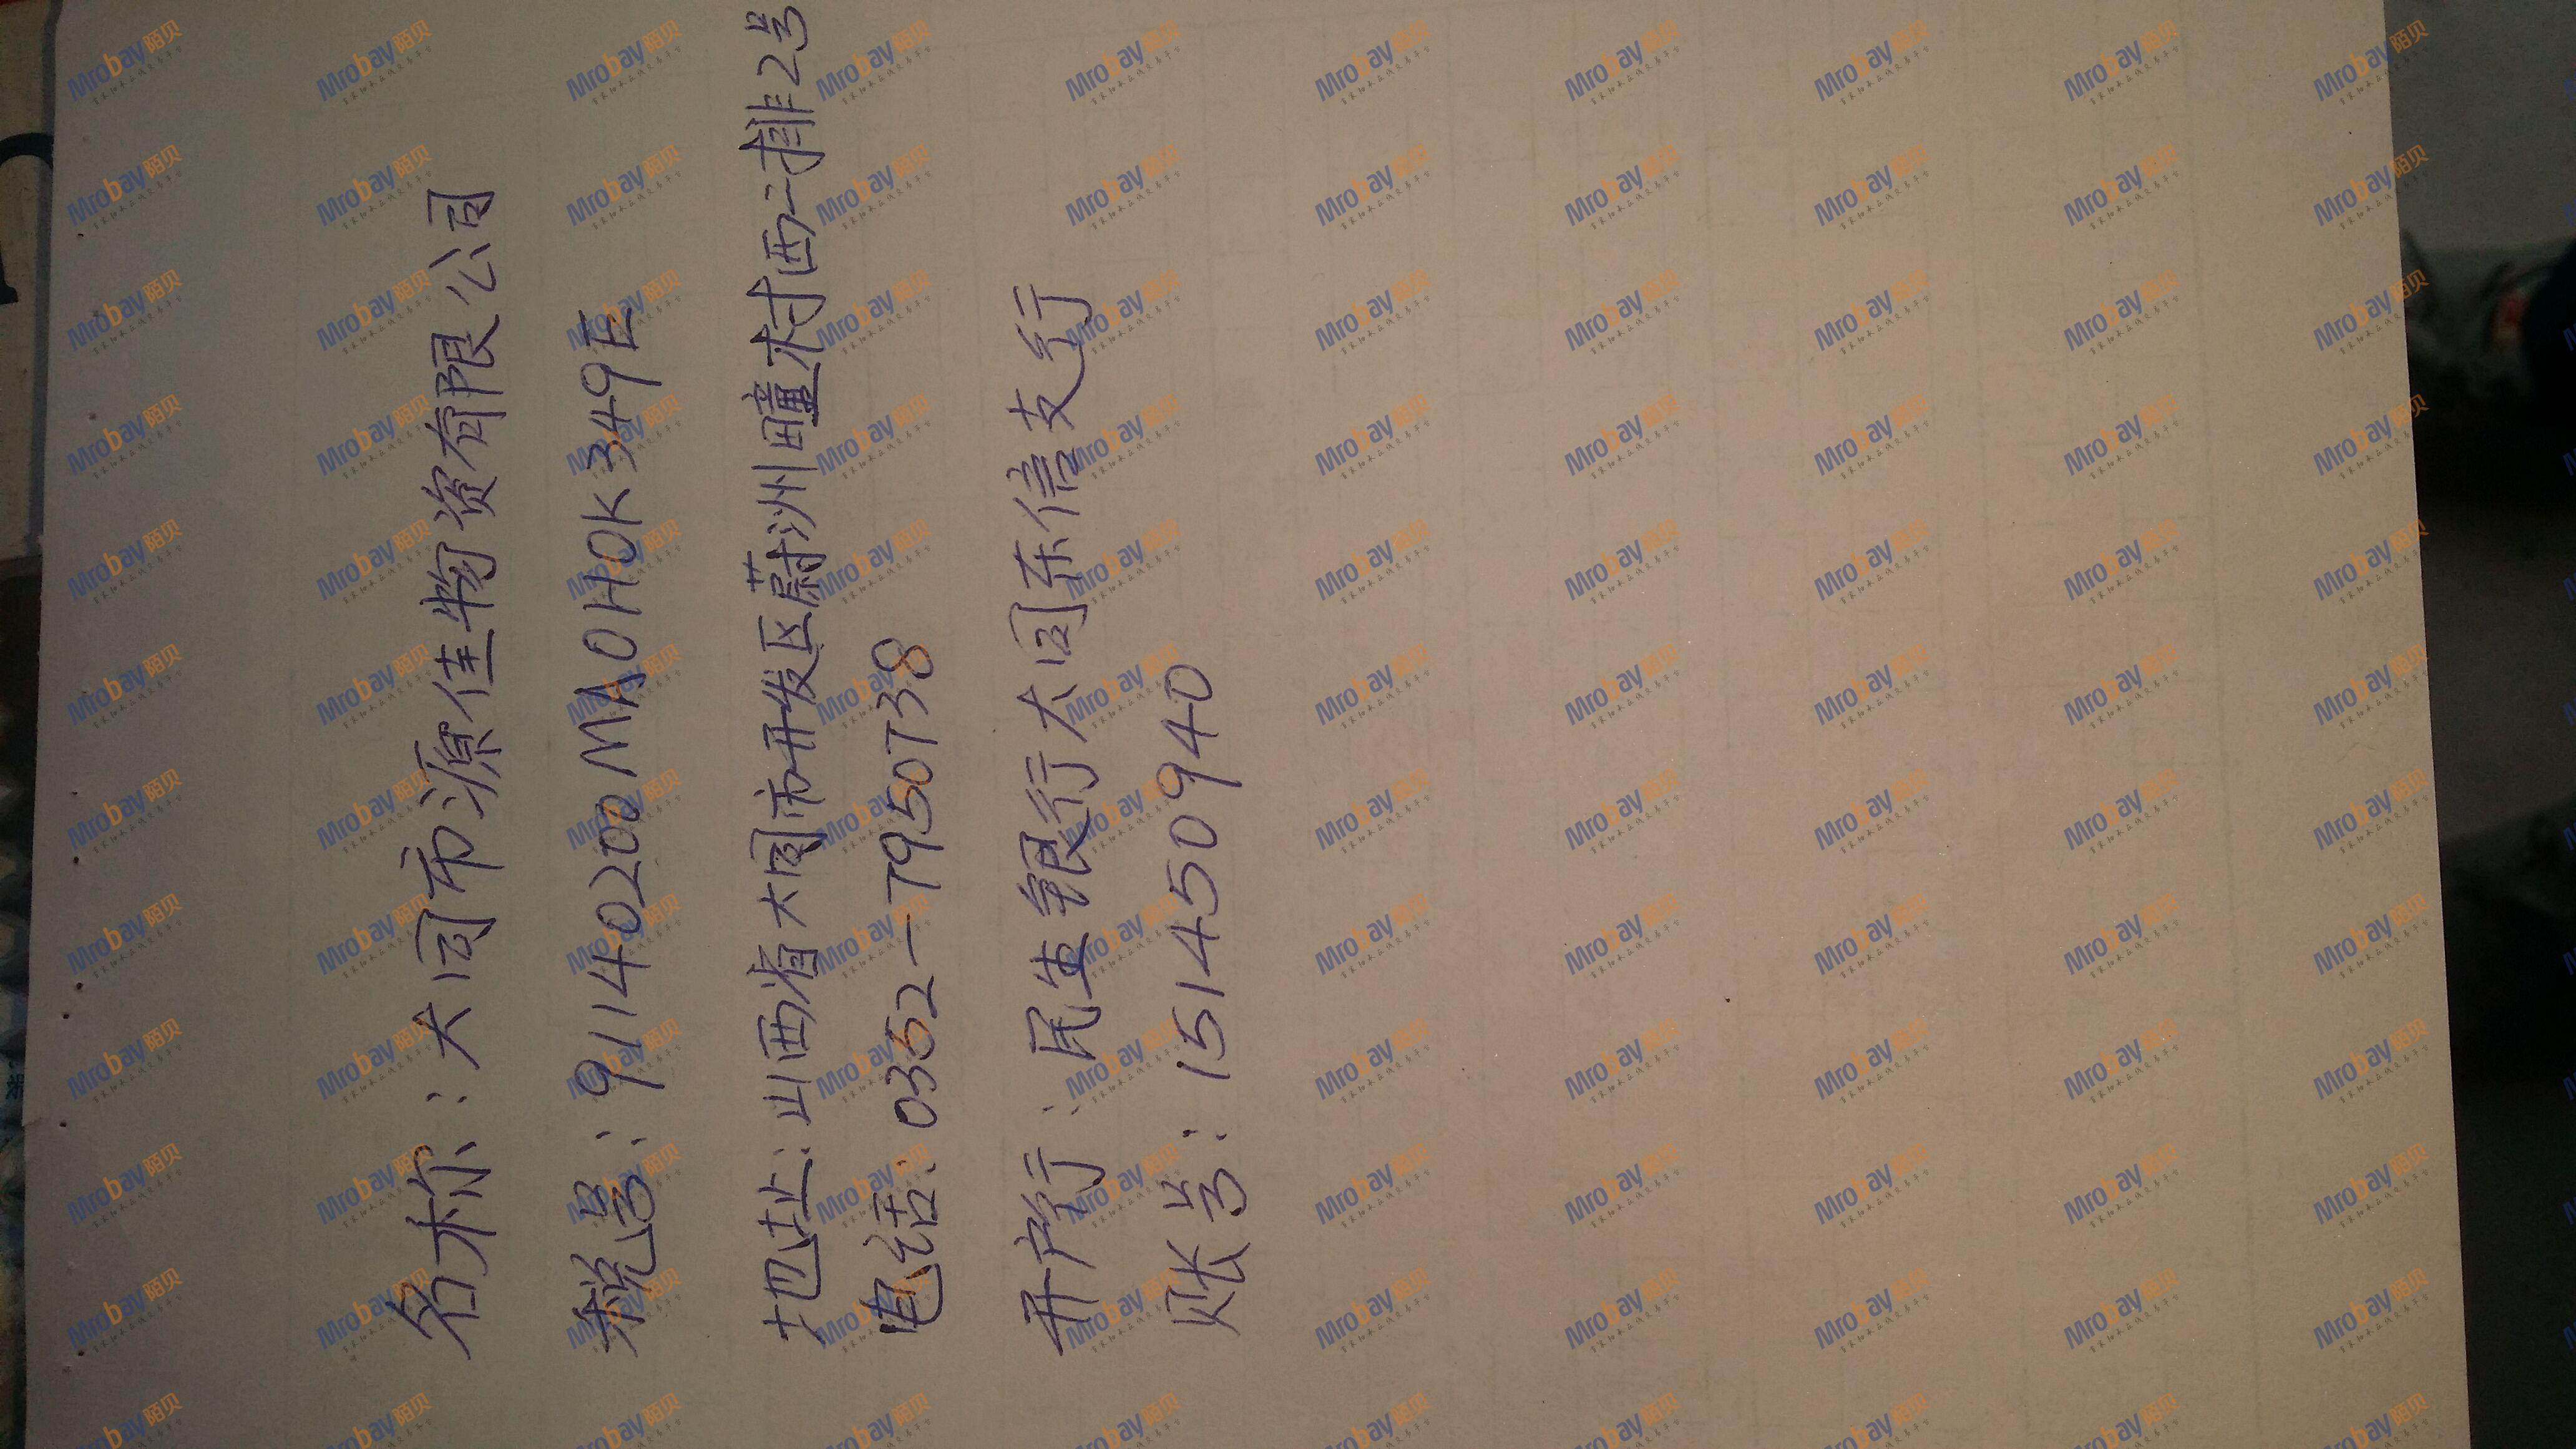 名称：大同市源佳物资有限公司
税号：91140200MA0H0K349E
地址：山西省大同市开发区蔚洲疃村西二排2号
电话：0352—7950738
开户行：民生银行大同东信支行
账号：151450940
Mrobay陌贝